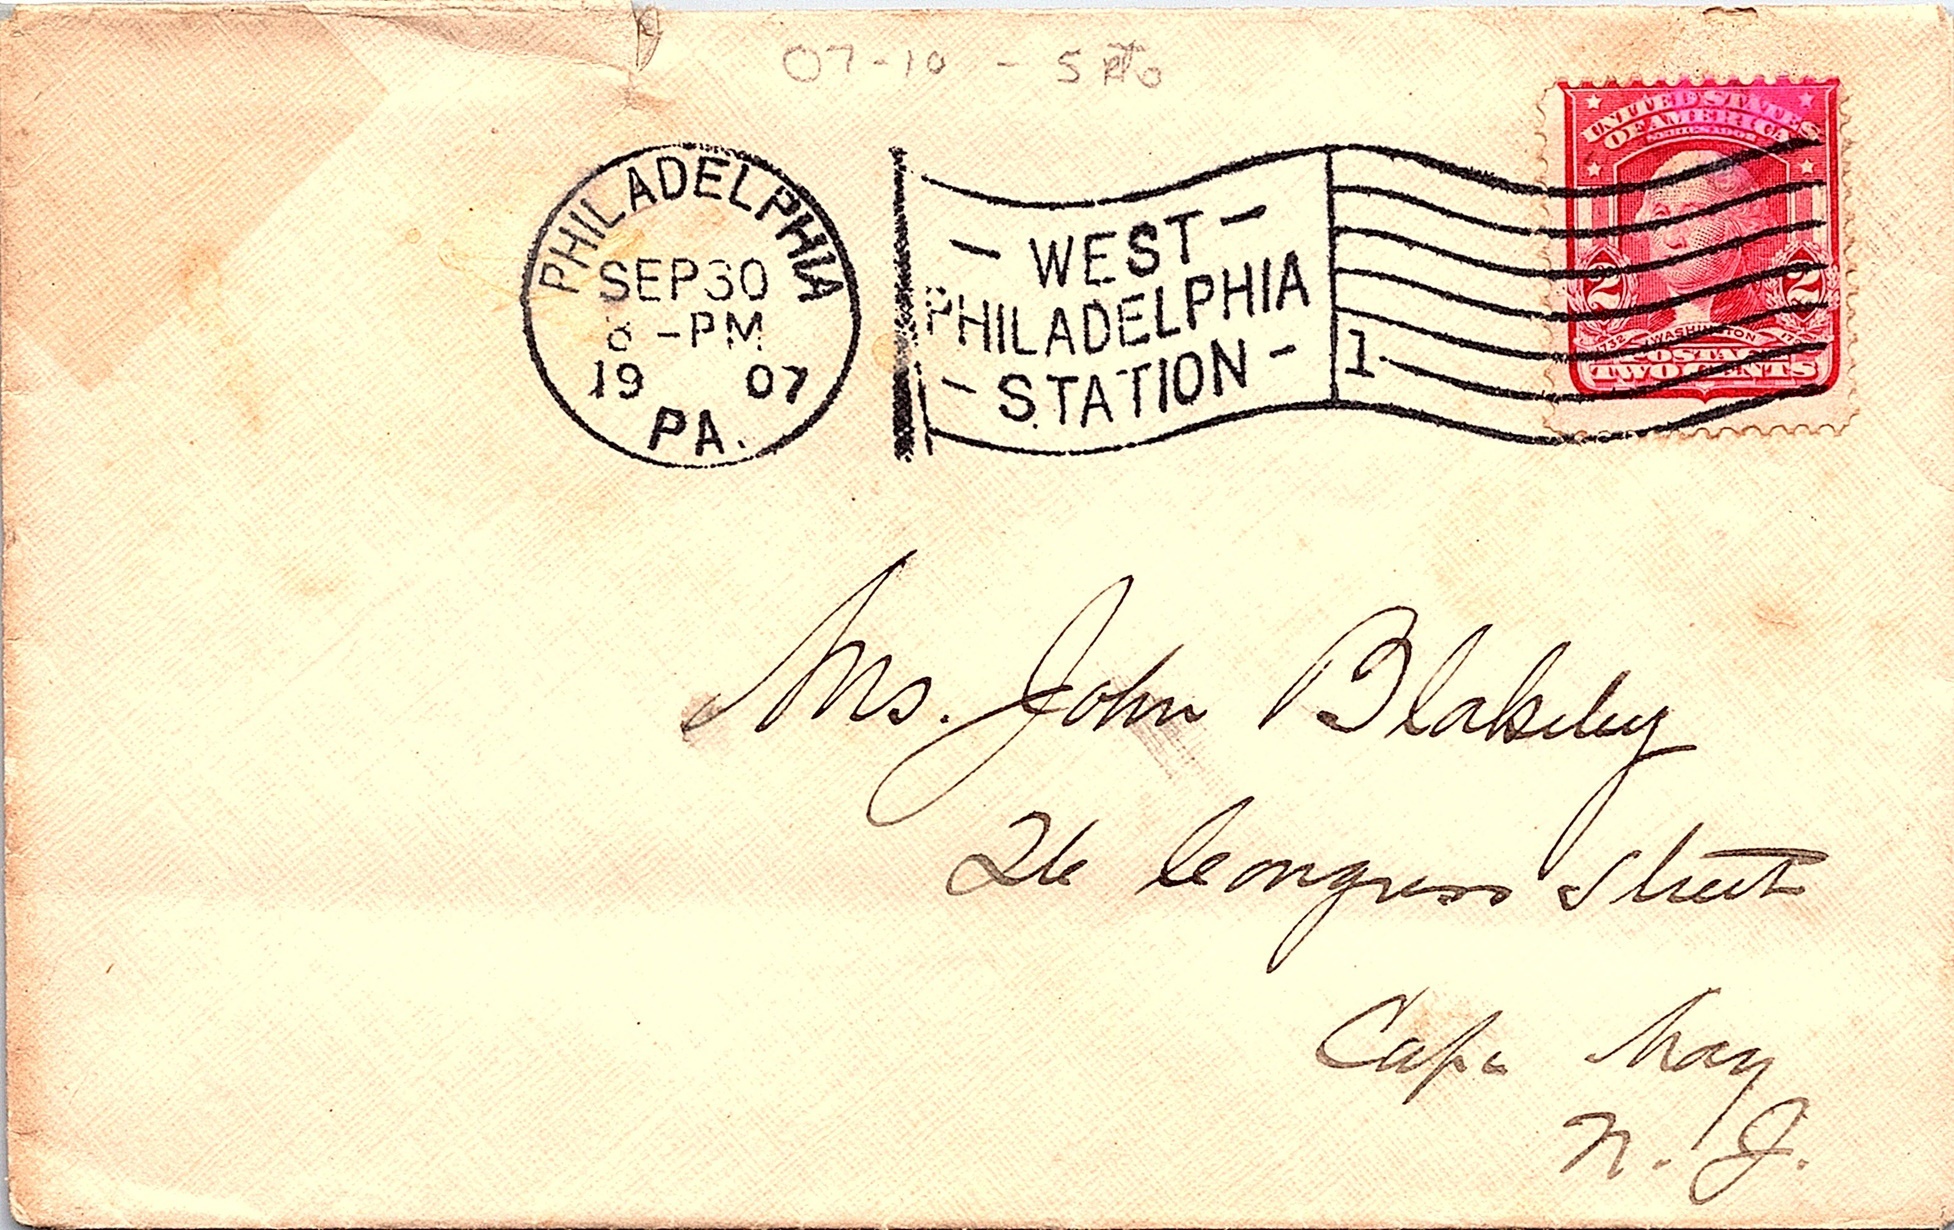 07-10 - 5
PHILADELPHIA
SEP 30
8 -PM
19 07
PA.
- WEST -
PHILADELPHIA
- STATION -
1
UNITED STATES
OF AMERICA
2 2
1732 WASHINGTON
POSTAGE
TWO CENTS
Mrs. John Blakeley
26 Congress Street
Cape May
N. J.